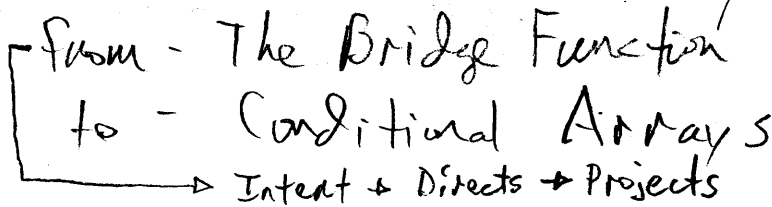 from - The Bridge Function
to - Conditional Arrays
Intent → Directs → Projects